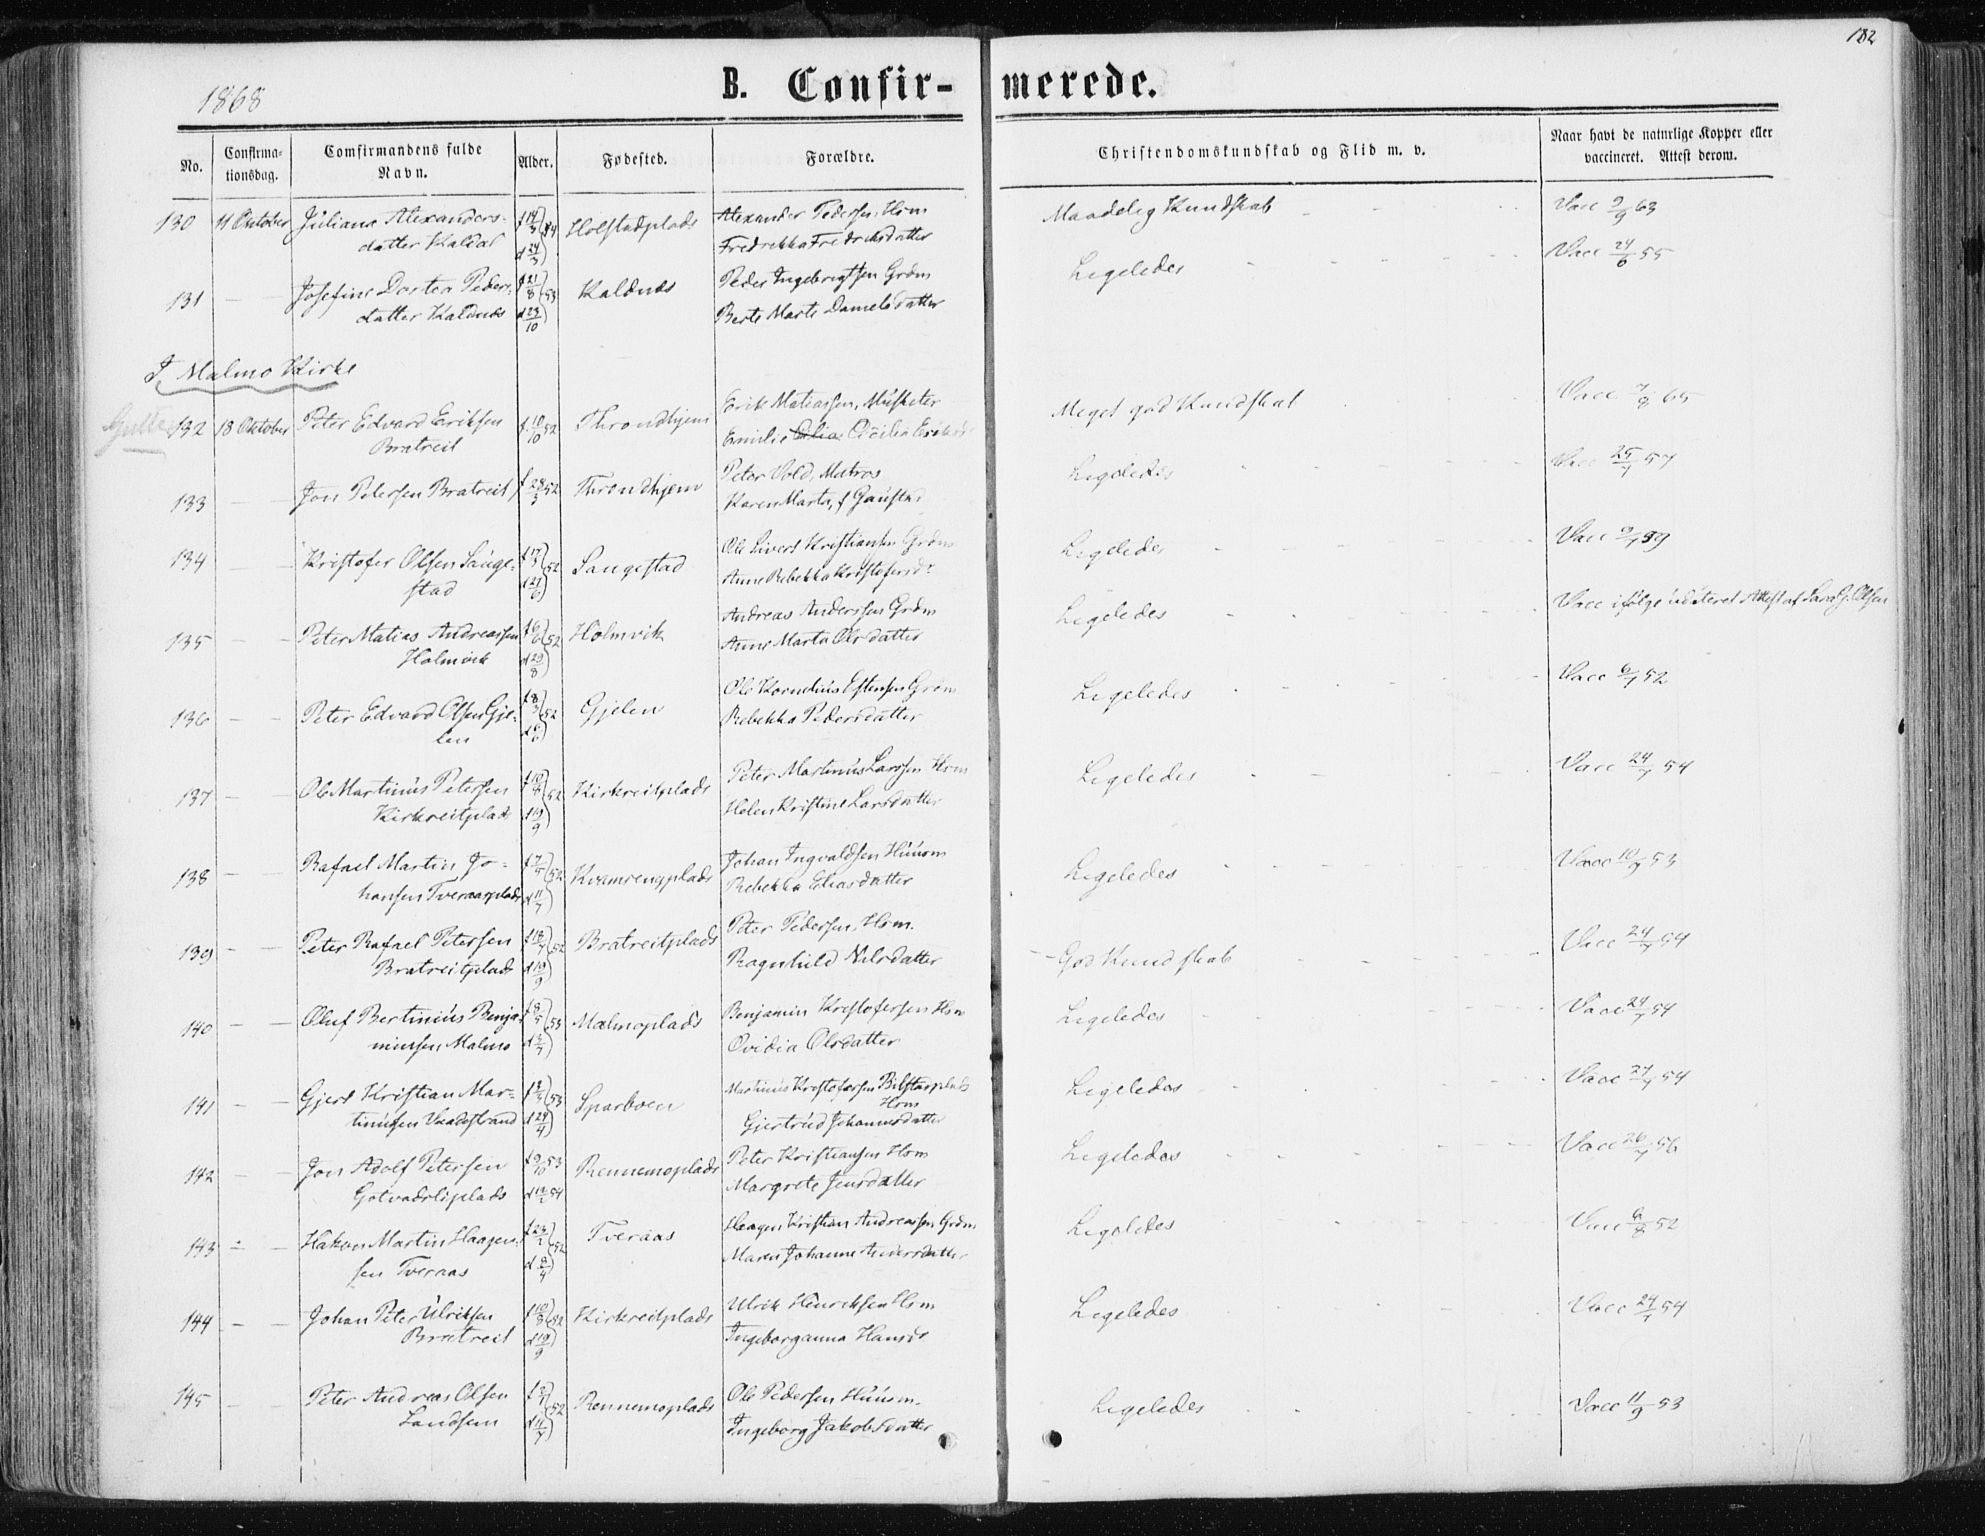 182
1868
B. Confir- merede.
No. Confirma- tionsdag. Comfirmandens fulde Navn. Alder. Fødested. Forældre. Christendomskundskab og Flid m. v. Naar havt de naturlige Kopper eller vaccineret. Attest derom.
130 11 Oktober Juliane Alexanders- f 14/3 54 Holstadplads Alexander Pedersen, Hsm Maadelig Kundskab Vacc 9/9 63
datter Kaldal d 24/3 Fredrikka Fredriksdatter
131 — — Josefine Dortea Peders- f 21/8 53 Kaldnæs Peder Ingebrigtsen Grdm Ligeledes Vacc 24/6 55
datter Kaldnæs d 23/10 Berte Marte Danielsdatter
I Malmo Kirke
Gutter
132 18 Oktober Peter Edvard Eriksen f. 10/10 52 Throndhjem Erik Matiassen, Musketer Meget god Kundskab Vacc 7/8 65
Bratreit Emilie Cicilia
133 — — Jon Petersen Bratreit f 28/3 52 Throndhjem Peter Vold, Matros Ligeledes Vacc 25/7 57
Karen Marta, f Gaustad
134 — — Kristofer Olsen Sauge- f 17/5 52 Saugestad Ole Sivert Kristiansen Grdm Ligeledes Vacc
stad d 27/6 Anne Rebekka Kristofersdr
135 — — Peter Matias Andreassen f 6/6 52 Holmvik Andreas Anderssen Grdm Ligeledes Vacc ifølge Attest af Olsen
Holmvik d 29/8 Anne Marta Olsdatter
136 — — Peter Edvard Olsen Gje- f 8/3 52 Gjelen Ole Kornelius Estensen Grdm Ligeledes Vacc 6/7 52
len Rebekka Pedersdatter
137 — — Ole Martinus Petersen f 10/8 52 Kirkreitplads Peter Martinus Larssen Hsm Ligeledes Vacc 24/7 54
Kirkreitplads d 19/9 Helen Kristine Larsdatter
138 — — Rafael Martin Jo- f 7/5 52 Kvamrengplads Johan Ingvaldsen Huusm Ligeledes Vacc 10/9 53
hansen Tveraasplads d 11/7 Rebekka Eliasdatter
139 — — Peter Rafael Petersen f 18/7 52 Bratreitplads Peter Pedersen, Hsm. God Kundskab Vacc 24/7 54
Bratreitplads d 19/9 Ragnhild Nilsdatter
140 — — Oluf Bertinius Benja- f 8/5 53 Malmoplads Benjamin Kristofersen Hsm Ligeledes Vacc 24/7 54
minsen, Malmo d 3/7 Ovidia Olsdatter
141 — — Gjert Kristian Mar- 53 Sparboen Martinus Kristofersen Bilstadplads Ligeledes Vacc 27/7 54
tinusen Vaadestrand d 24/4 Hsm
Gjertrud Johannesdatter
142 — — Jon Adolf Petersen f 9/10 53 Rennemoplads Peter Kristiansen Hsm Ligeledes Vacc 26/7 56
Gotvadsliplads d 12/2 54 Margrete Jensdatter
143 — — Hakon Martin Haagen- f 23/2 52 Tveraas Haagen Kristian Andreassen Grdm Ligeledes Vacc 6/8 52
sen Tveraas d 8/4 Maren Johanne Andersdatter
144 — — Johan Peter Ulriksen f 10/8 52 Kirkreitplads Ulrik Hinriksen Hsm Ligeledes Vacc 24/7 54
Bratreit d 19/9 Ingeborganna Hansdr
145 — — Peter Andreas Olsen 52 Rennemoplads Ole Pedersen Huusm. Ligeledes Vacc 11/9 53
Landsem d 11/7 Ingeborg Jakobsdatter